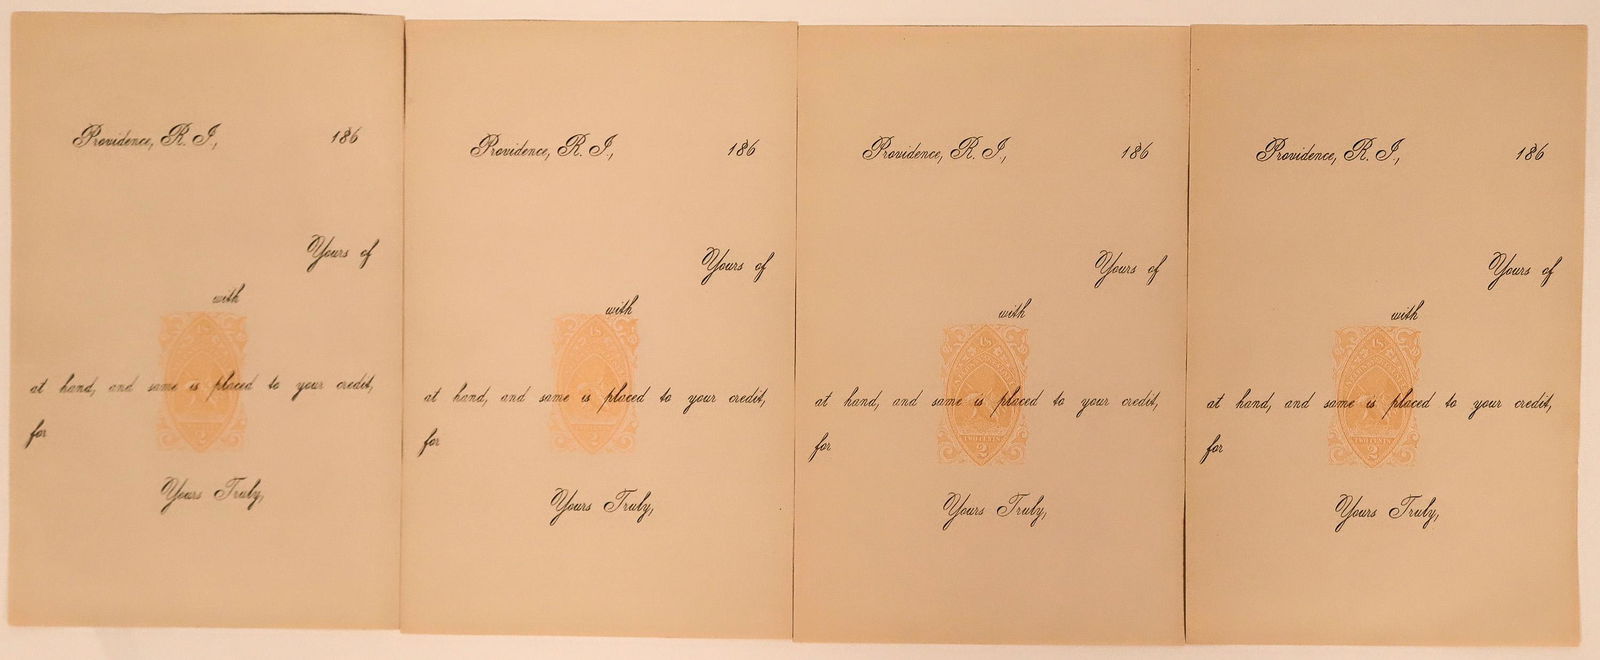 Providence, R. I., 186
Yours of
with
at hand, and same is placed to your credit,
for
Yours Truly,
Providence, R. I., 186
Yours of
with
U.S.
at hand, and same is placed to your credit,
for
2
Yours Truly,
Providence, R. I., 186
Yours of
with
U.S.
at hand, and same is placed to your credit,
for
TWO CENTS
2
Yours Truly,
Providence, R. I., 186
Yours of
with
U.S.
at hand, and same is placed to your credit,
for
TWO CENTS
2
Yours Truly,